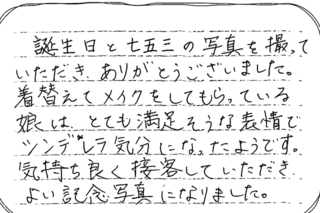 誕生日と七五三の写真を撮って
いただき ありがとうございました。
着替えてメイクをしてもらっている
娘は、とても満足そうな表情で
シンデレラ気分になったようです。
気持ち良く接客していただき
よい記念写真になりました。